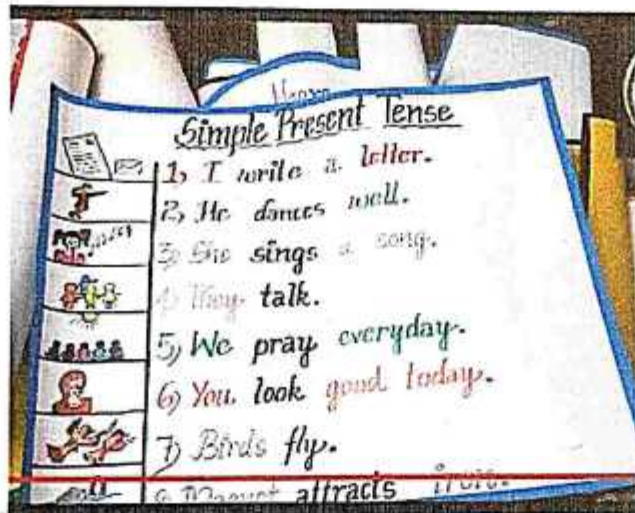 Simple Present Tense
1) I write a letter.
2) He dances well.
3) She sings a song.
4) They talk.
5) We pray everyday.
6) You look good today.
7) Birds fly.
8) Magnet attracts iron.